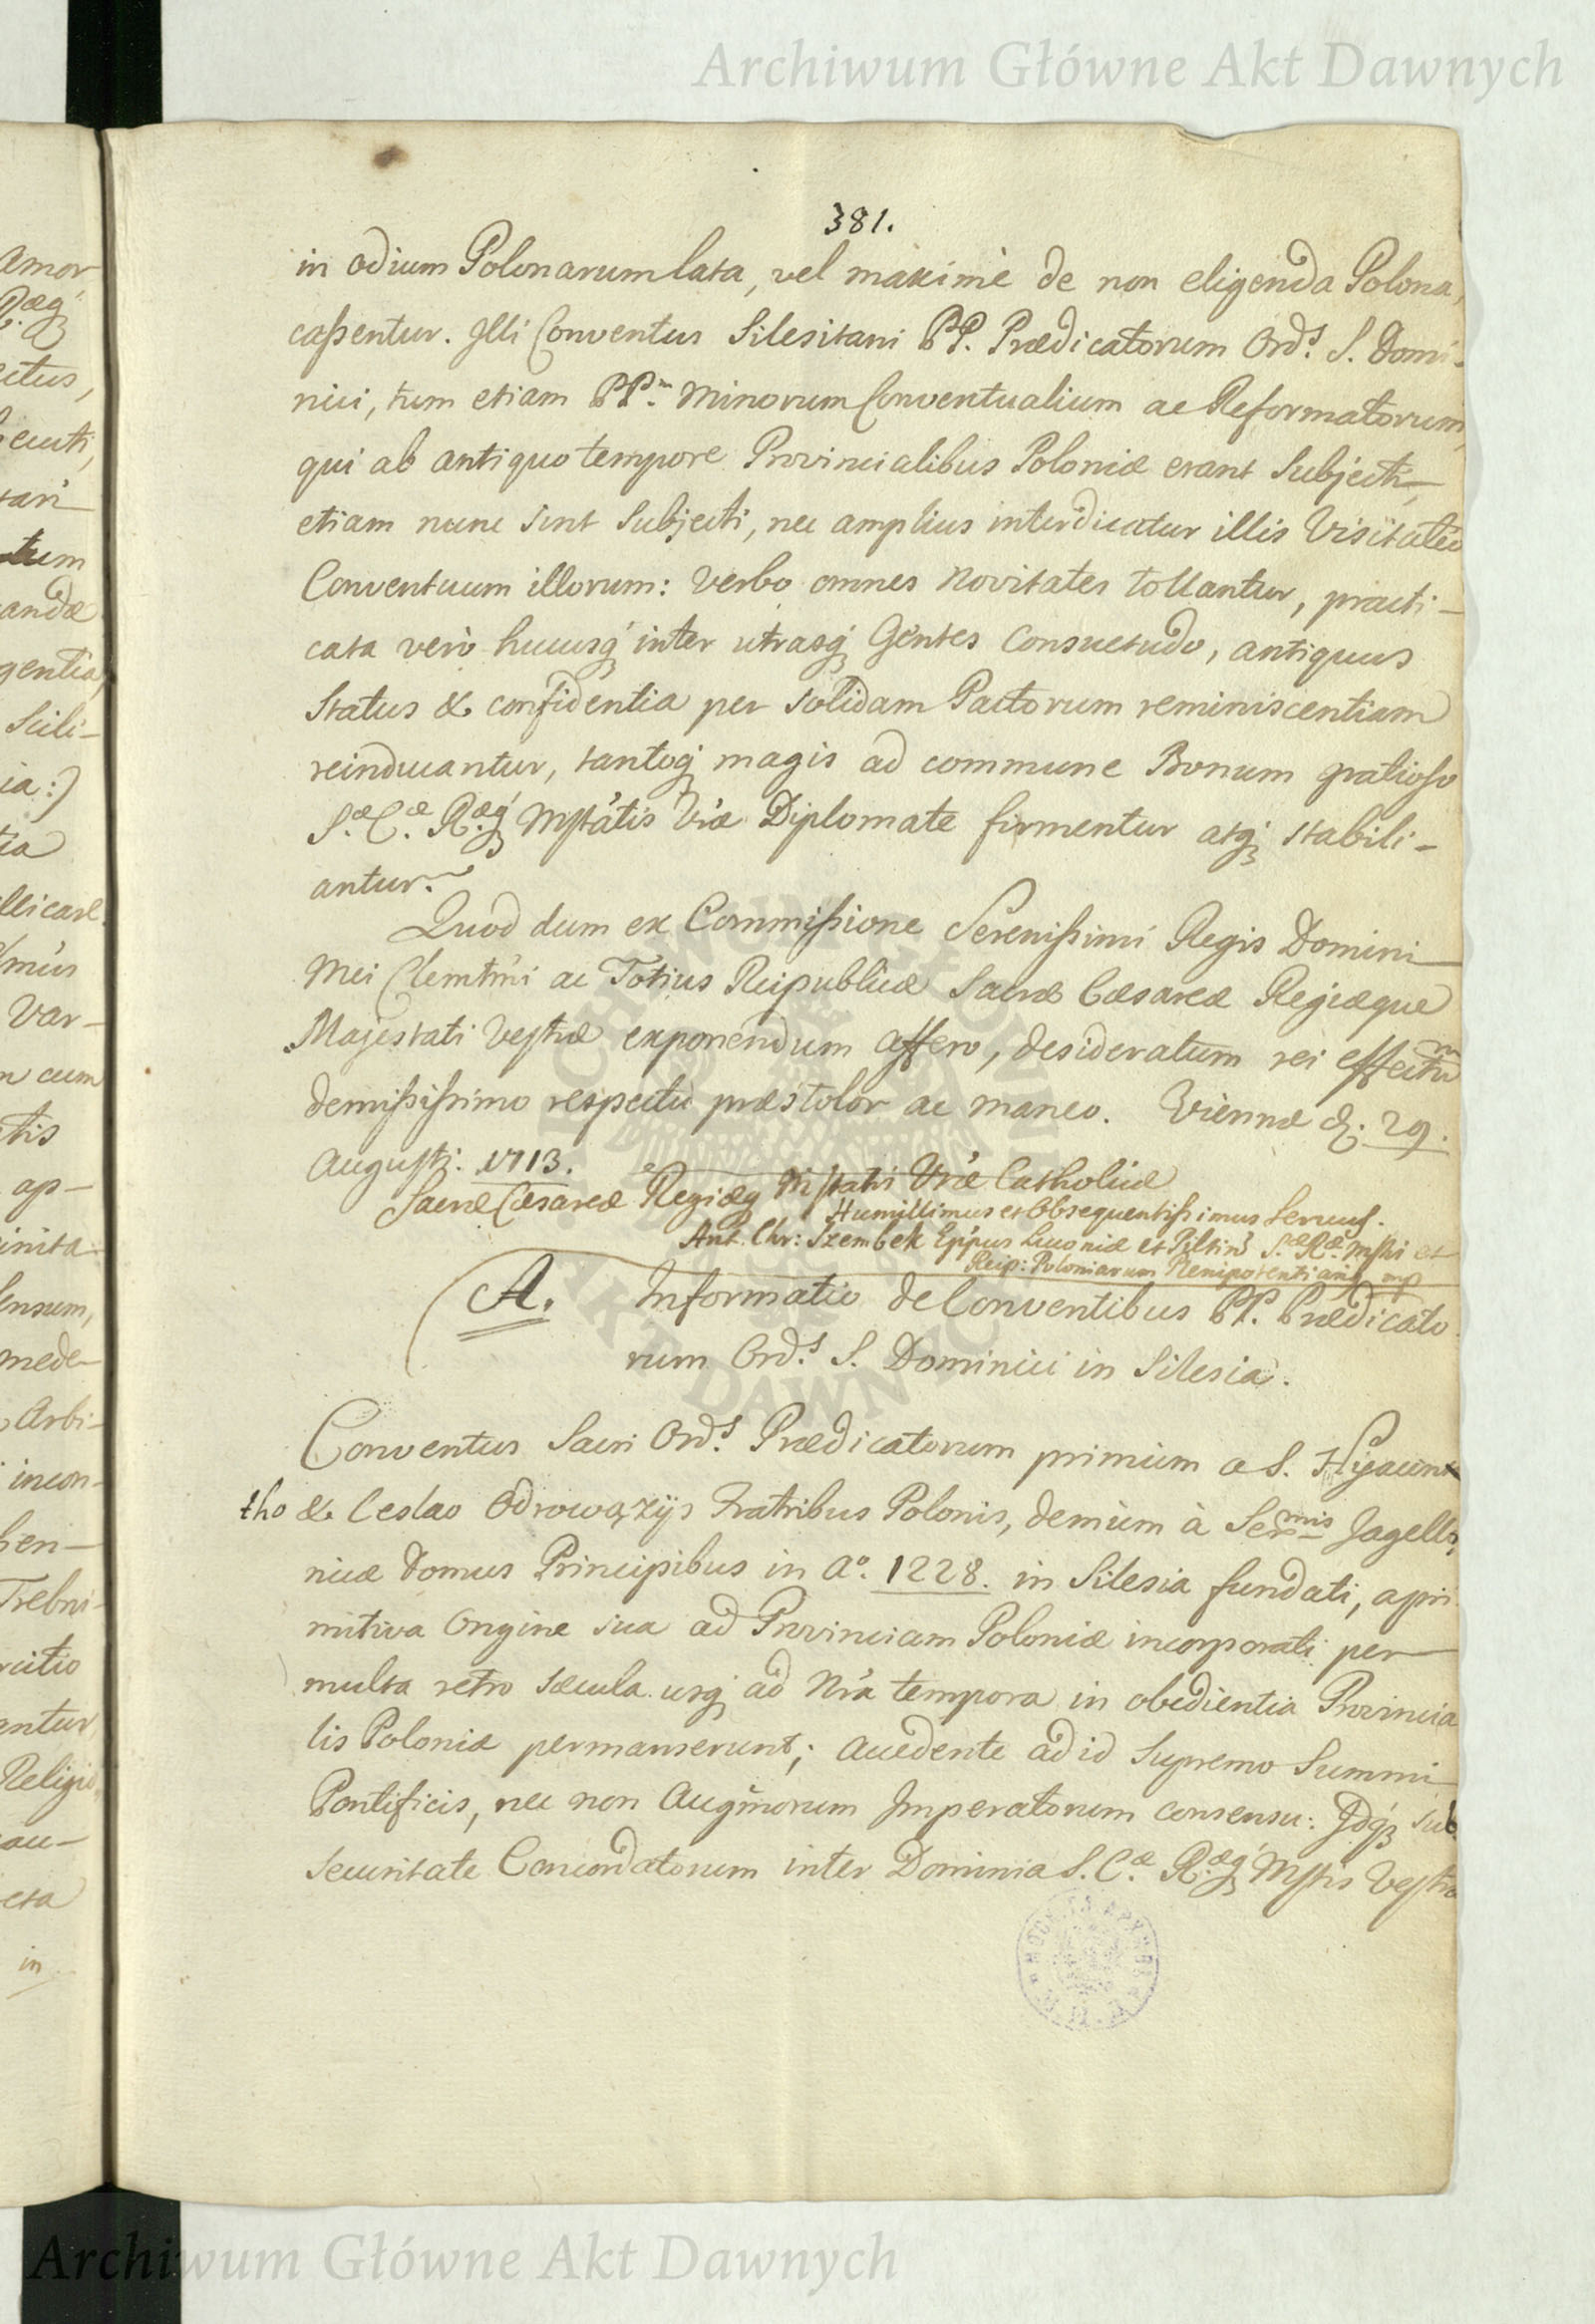 Archiwum Główne Akt Dawnych
381.
in odium Polonarum lata, vel maximè de non eligenda Polona,
cassentur. Illi Conventus Silesitani PP. Prædicatorum Ord.s S. Domi-
nici, tum etiam PP.m Minorum Conventualium ac Reformatorum,
qui ab antiquo tempore Provincialibus Poloniæ erant Subjecti,
etiam nunc sint Subjecti, nec amplius interdicatur illis Visitatio
Conventuum illorum: Verbo omnes Novitates tollantur, practi-
cata verò hucusq; inter utrasq; Gentes Consuetudo, antiquus
Status & confidentia per solidam Pactorum reminiscentiam
reinducantur, tantoq; magis ad commune Bonum gratioso
S.æ C.æ R.æq; Mstátis Vræ Diplomate firmentur atq; stabili-
antur.
Quod dum ex Commissione Serenissimi Regis Domini
Mei Clemtmi ac Totius Reipublicæ Sacræ Cæsareæ Regiæque
Majestati Vestræ exponendum affero, desideratum rei effectum
demississimo respectu præstolor ac maneo. Viennæ d. 29.
Augusti. 1713.
Sacræ Cæsareæ Regiæq Mstatis Vræ Catholicæ
Humillimus et Obsequentissimus Servus.
Ant. Chr: Szembek Eppus Livoniæ et Piltin3 S.æ R.æ Mstis et
Reip: Poloniarum Plenipotentiarius mp
A. Informatio de Conventibus PP. Prædicato
rum Ord.s S. Dominici in Silesia.
Conventus Sacri Ord.s Prædicatorum primùm a S. Hyacin
tho & Ceslao Odrowążijs Fratribus Polonis, demùm à Sermis Jagello
nicæ Domus Principibus in Aº. 1228. in Silesia fundati, a pri
mitiva Origine sua ad Provinciam Poloniæ incorporati per
multa retro sæcula usq; ad Nra tempora in obedientia Provincia
lis Poloniæ permanserunt; accedente ad id Supremo Summi
Pontificis, nec non Augmorum Imperatorum consensu: Idq; sub
securitate Concordatorum inter Dominia S. C.æ R.æq; Mstis Vestræ
Archiwum Główne Akt Dawnych